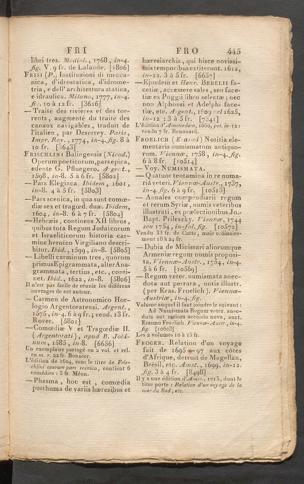 FRI
libri tres. Mediol., 1768, in-4.
fig. V. 9 fr. de Lalande. [1806]
FRISI [P., Instituzioni di mecca-
nica, d'idrostatica, d'idrome-
tria, e dell' architettura statica,
e idraulica. Milano, 1777, in-4.
fi. 10 à 12 fr. [3616]
— Traité des rivières et des tor-
rents, augmenté du traité des
canaux navigables, traduit de
l'italien, par Deserrey. Paris,
Impr. Roy., 1774, in-4. fig. 8 à
10 fr. [3643]
FRISCHLINI Balingensis (Nicod.)
Operum poeticorum, pars epica,
edente G. Pfluegero. Argent.,
1598, in-8. 3 à 6 fr. [5803]
— Pars Elegica. Ibidem, 1601,
in-8. 4 à 5 fr. [5803]
— Pars scenica, in qua sunt comœ-
diæ sex et tragœd. duæ. Ibidem,
1604, in-8. 6 à 7 fr. [5804]
— Hebræis, continens XII libros,
quibus tota Regum Judaicorum
et Israeliticorum historia car-
mine heroico Virgiliano descri-
bitur. Ibid., 1599, in-8. [5805]
— Libelli carminum tres, quorum
primus Epigrammata, alter Ana-
grammata, tertius, etc., conti-
net. Ibid., 1622, in-8. [5806]
Il n'est pas facile de réunir les différens
ouvrages de cet auteur.
— Carmen de Astronomico Hor-
logio Argentoratensi. Argent.,
1575, in-4. 6 à 9 fr.; vend. 13 fr.
Rover. [5801]
— Comœdiæ V et Tragœdiæ II.
(Argentorati), apud B. Jobi-
num, 1585, in-8. [6656]
Un exemplaire partagé en 2 vol. et rel.
en m. r. 24 fr. Bonnier.
L'édition de 1604, sous le titre de Fris-
chlini operum pars scenica, contient 6
comédies : 3 fr. Méon.
— Phasma, hoc est, comœdia
posthuma de variis hæresibus et
FRO
445
hæresiarchis, qui hisce novissi-
mis temporibus extiterunt. 1612,
in-12. 3 à 5 fr. [6657]
— Ejusdem et Henr. BEBELII fa-
cetiæ, accessere sales, seu face-
tiæ ex Poggii libro selectæ; nec
non Alphonsi et Adelphi face-
tiæ, etc. Argent., 1609 et 1625,
in-12 : 3 à 5 fr. [7341]
L'édition d'Amsterdam, 1660, pet. in-12 :
vendu 7 fr. Bonnard.
FROELICH (Erasm.) Notitia ele-
mentaris numismatum antiquo-
rum. Viennæ, 1758, in-4. fig.
6 à 8 fr. [10514]
— Voy. NUMISMATA.
— Quatuor tentamina in re numa-
ria vetere. Viennæ-Austr., 1737,
in-4. fig. 6 à 9 fr. [10513]
— Annales compendiarii regum
et rerum Syriæ, numis veteribus
illustrati, ex prælectionibus Jo.-
Bapt. Prileszky. Viennæ, 1744
seu 1754, in-fol. fig. [10562]
Vendu 22 fr. de Cotte, mais ordinaire-
ment 10 à 12 fr.
— Dubia de Minnisari aliorumque
Armeniæ regum numis proposi-
ta. Viennæ-Austr., 1754, in-4.
5 à 6 fr. [10569]
— Regum veter. numismata anec-
dota aut perrara, notis illustr.
(per Eras. Froelich). Viennæ-
Austriæ, in-4. fig.
Volume auquel il faut joindre le suivant :
Ad Numismata Regum veter. anec-
dota aut rariora accessio nova, auct.
Erasmo Froelich. Viennæ-Austr., in-4.
fig. [10563]
Les 2 volumes 10 à 12 fr.
FROGER. Relation d'un voyage
fait de 1695 — 97 aux côtes
d'Afrique, détroit de Magellan,
Brésil, etc. Amst., 1699, in-12.
fig. 3 à 4 fr. [8498]
Il y a une édition d'Amst., 1715, dont le
titre porte : Relation d'un voyage de la
mer du Sud, etc.